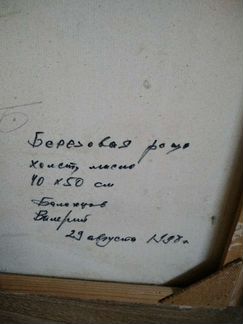 Березовая роща
холст, масло
40 x 50 см
Валерий
29 августа